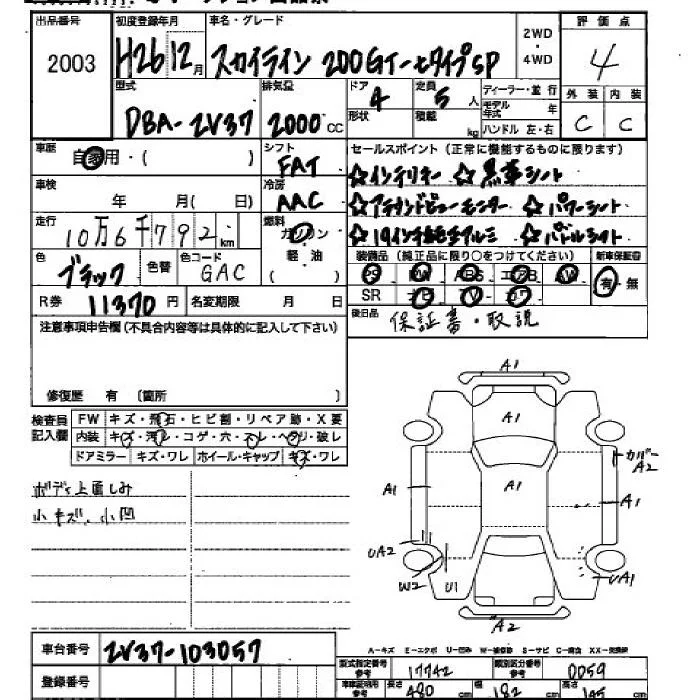 出品番号 初度登録年月 車名・グレード 2WD・4WD 評価点
2003 H26 12月 スカイライン 200GT-tタイプSP 4
型式 排気量 ドア 4 定員 5人 ディーラー・並行 外装 内装
形状 積載 kg モデル年式 年
DBA-ZV37 2000cc ハンドル 左・右 C C
車歴 自家用・( ) シフト FAT セールスポイント(正常に機能するものに限ります)
☆インテリキー ☆黒革シート
車検 年 月( 日) 冷房 AAC
☆アラウンドビューモニター ☆パワーシート
走行 10万6千792km 燃料 ガソリン・軽油( )
☆19インチ純正アルミ ☆パドルシフト
色 ブラック 色替 色コード GAC 装備品(純正品に限り○をつけてください) 新車保証書
PS・PW・ABS・エアB・AW 有・無
R券 11370円 名変期限 月 日 SR ナビ・TV・カワ
注意事項申告欄(不具合内容等は具体的に記入して下さい) 後日品 保証書・取説
修復歴 有 〔箇所 〕
検査員記入欄 FW キズ・飛石・ヒビ割・リペア跡・X要
内装 キズ・汚レ・コゲ・穴・スレ・ヘタリ・破レ
ドアミラー キズ・ワレ ホイール・キャップ キズ・ワレ
ボディ上面しみ
小キズ、小凹
A1
A1
カバーA2
A1
A1
A1
UA2
W2
U1
UA1
A2
A-キズ E-エクボ U-凹み W-補修跡 S-サビ C-腐食 XX-交換済
車台番号 ZV37-103057
型式指定番号 参考 17742 類別区分番号 参考 0059
登録番号
車両証明用 参考 長さ 480cm 幅 182cm 高さ 145cm